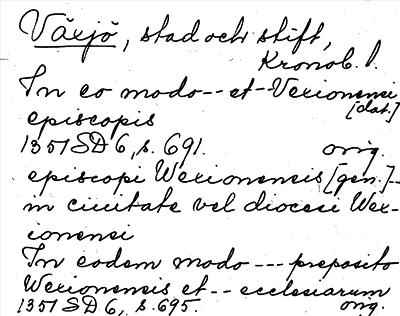 Växjö, stad och stift,
Kronob. l.
In eo modo -- et -- Vexionensi
[dat.]
episcopis
1351 SD 6, s. 691. orig.
episcopi Wexionensis [gen.] --
in ciuitate vel diocesi Wex-
ionensi
In eodem modo --- preposito
Wexionensis et -- ecclesiarum
1351 SD 6, s. 695. orig.